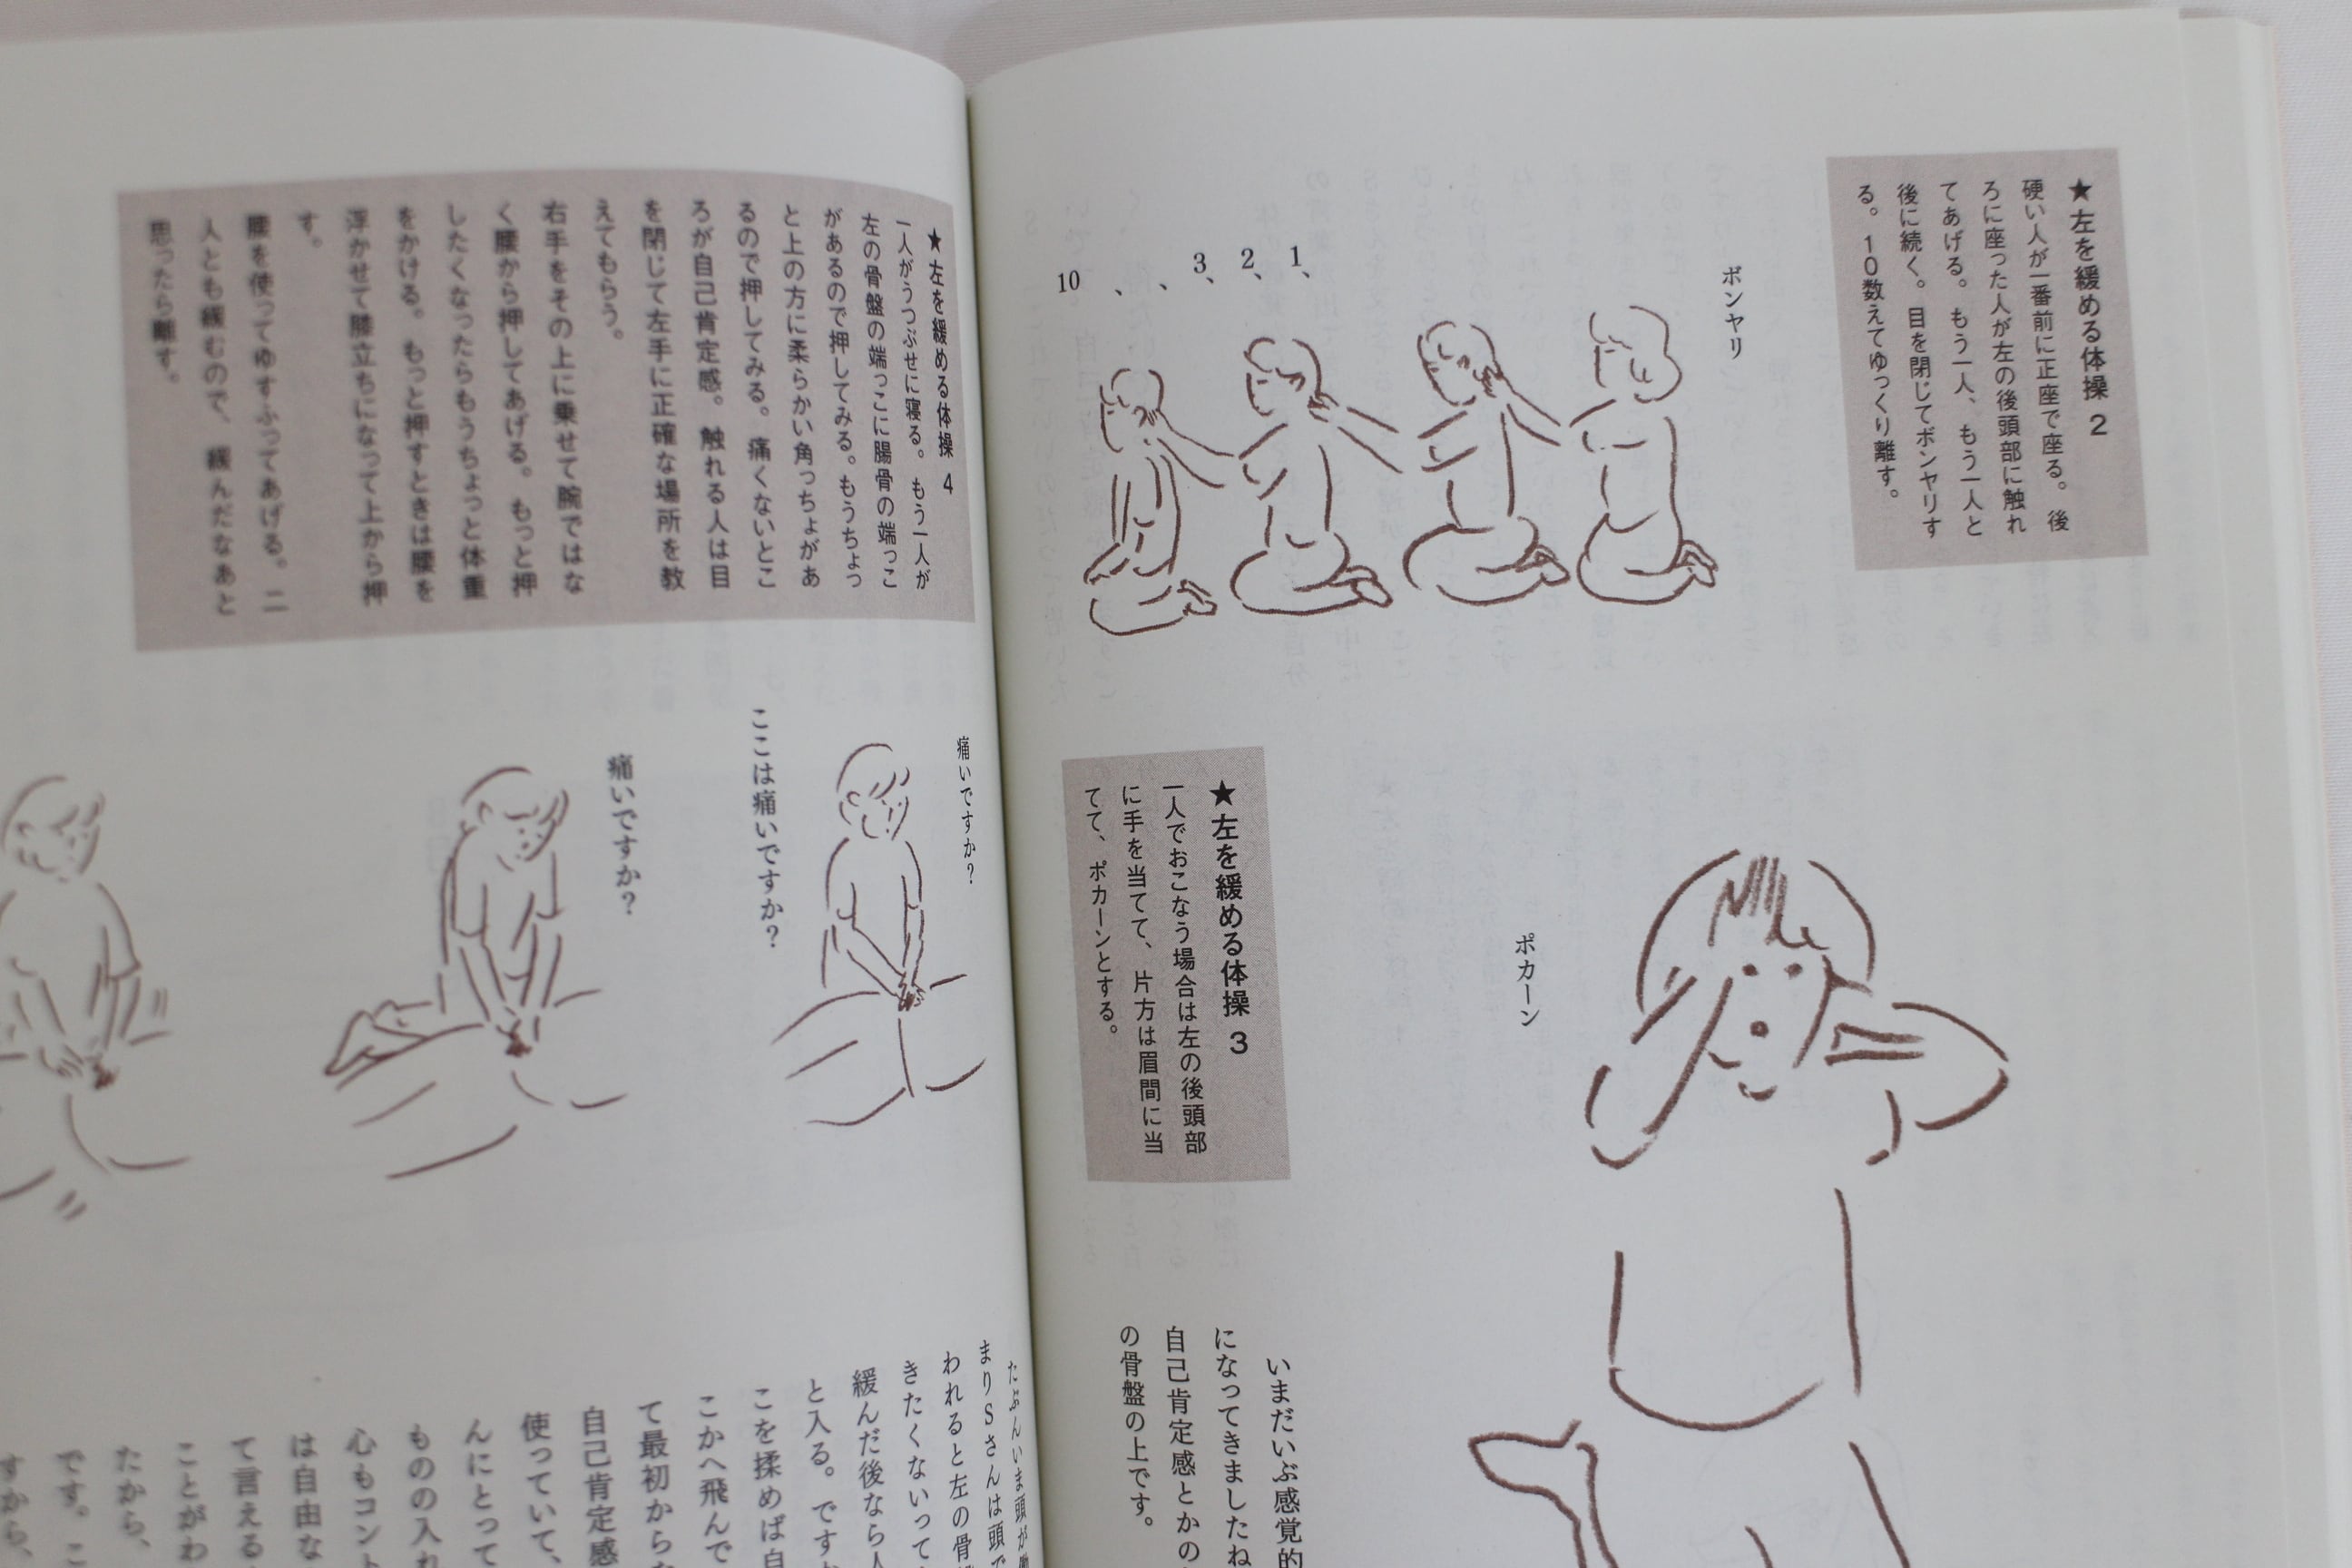 ★左を緩める体操 2
硬い人が一番前に正座で座る。後
ろに座った人が左の後頭部に触れ
てあげる。もう一人、もう一人と
後に続く。目を閉じてボンヤリす
る。10数えてゆっくり離す。
ボンヤリ
1、
2、
3、
、
、
10
ポカーン
★左を緩める体操 3
一人でおこなう場合は左の後頭部
に手を当てて、片方は眉間に当
てて、ポカーンとする。
いまだいぶ感覚的
になってきましたね
自己肯定感とかの
の骨盤の上です。
★左を緩める体操 4
一人がうつぶせに寝る。もう一人が
左の骨盤の端っこに腸骨の端っこ
があるので押してみる。もうちょっ
と上の方に柔らかい角っちょがあ
るので押してみる。痛くないとこ
ろが自己肯定感。触れる人は目
を閉じて左手に正確な場所を教
えてもらう。
右手をその上に乗せて腕ではな
く腰から押してあげる。もっと押
したくなったらもうちょっと体重
をかける。もっと押すときは腰を
浮かせて膝立ちになって上から押
す。
腰を使ってゆすぶってあげる。二
人とも緩むので、緩んだなあと
思ったら離す。
痛いですか?
ここは痛いですか?
痛いですか?
たぶんいま頭が
まりSさんは頭で
われると左の骨
きたくないって
緩んだ後なら人
と入る。ですか
こを揉めば自
こかへ飛んで
て最初からな
自己肯定感
使っていて、
んにとって
ものの入れ
心もコント
は自由な
て言える
ことがわ
たから、
です。こ
すから、